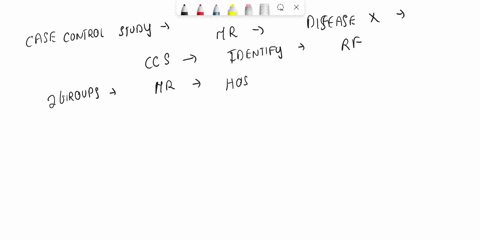 CASE CONTROL STUDY → MR → DISEASE X →
CCS → IDENTIFY → RF
2 GROUPS → MR → HOS